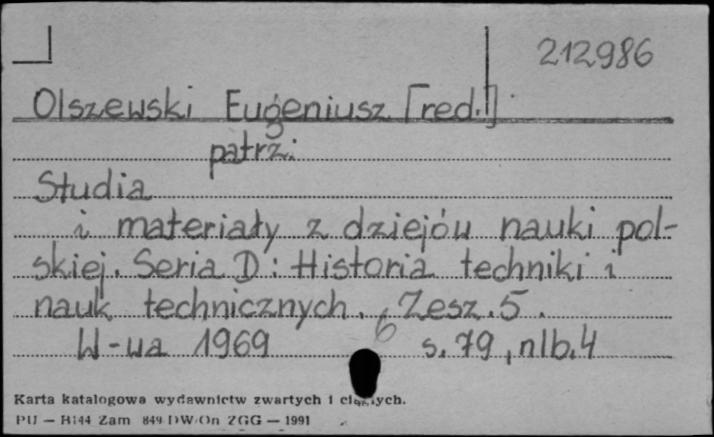 212986
Olszewski Eugeniusz [red.]
patrz:
Studia
i materiały z dziejów nauki pol-
skiej. Seria D: Historia techniki i
nauk technicznych. Zesz. 5.
W-wa 1969 6 s. 79, nlb. 4
Karta katalogowa wydawnictw zwartych i ciągłych.
PU — H144 Zam 849 DW/On ZGG — 1991